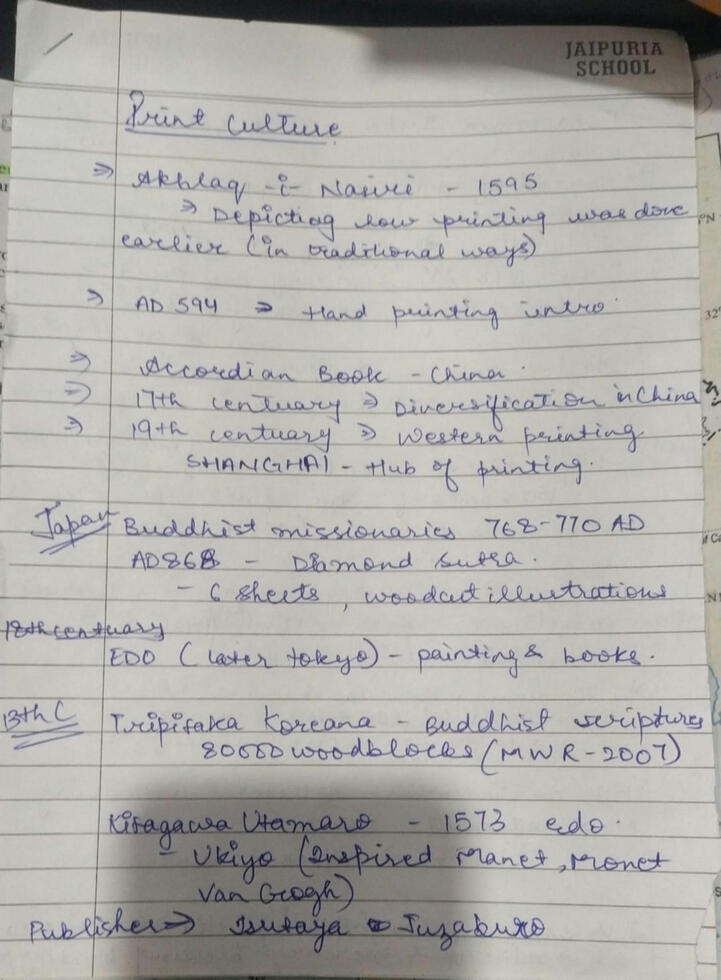 JAIPURIA
SCHOOL
Print culture
⇒ Akhlaq -i- Nasiri - 1595
⇒ Depicting how printing was done
earlier (in traditional ways)
⇒ AD 594 ⇒ Hand printing intro.
⇒ Accordian Book - China.
⇒ 17th centuary ⇒ Diversification in China
⇒ 19th centuary ⇒ Western printing
SHANGHAI - Hub of printing.
Japan Buddhist missionaries 768-770 AD
AD868 - Diamond sutra.
- 6 sheets, woodcut illustrations
18th centuary
EDO (later tokyo) - painting & books.
13th C Tripitaka Koreana - Buddhist scriptures
80000 woodblocks (MWR-2007)
Kitagawa Utamaro - 1573 edo.
- Ukiyo (Inspired Manet, Monet
Van Grogh)
Publisher ⇒ Tsutaya Juzaburo